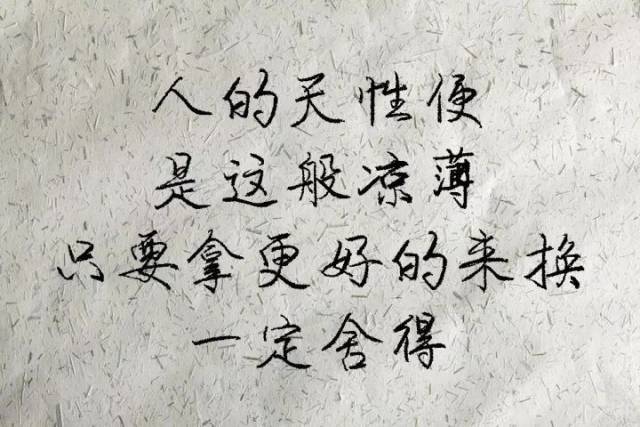 人的天性便
是这般凉薄
只要拿更好的来换
一定舍得